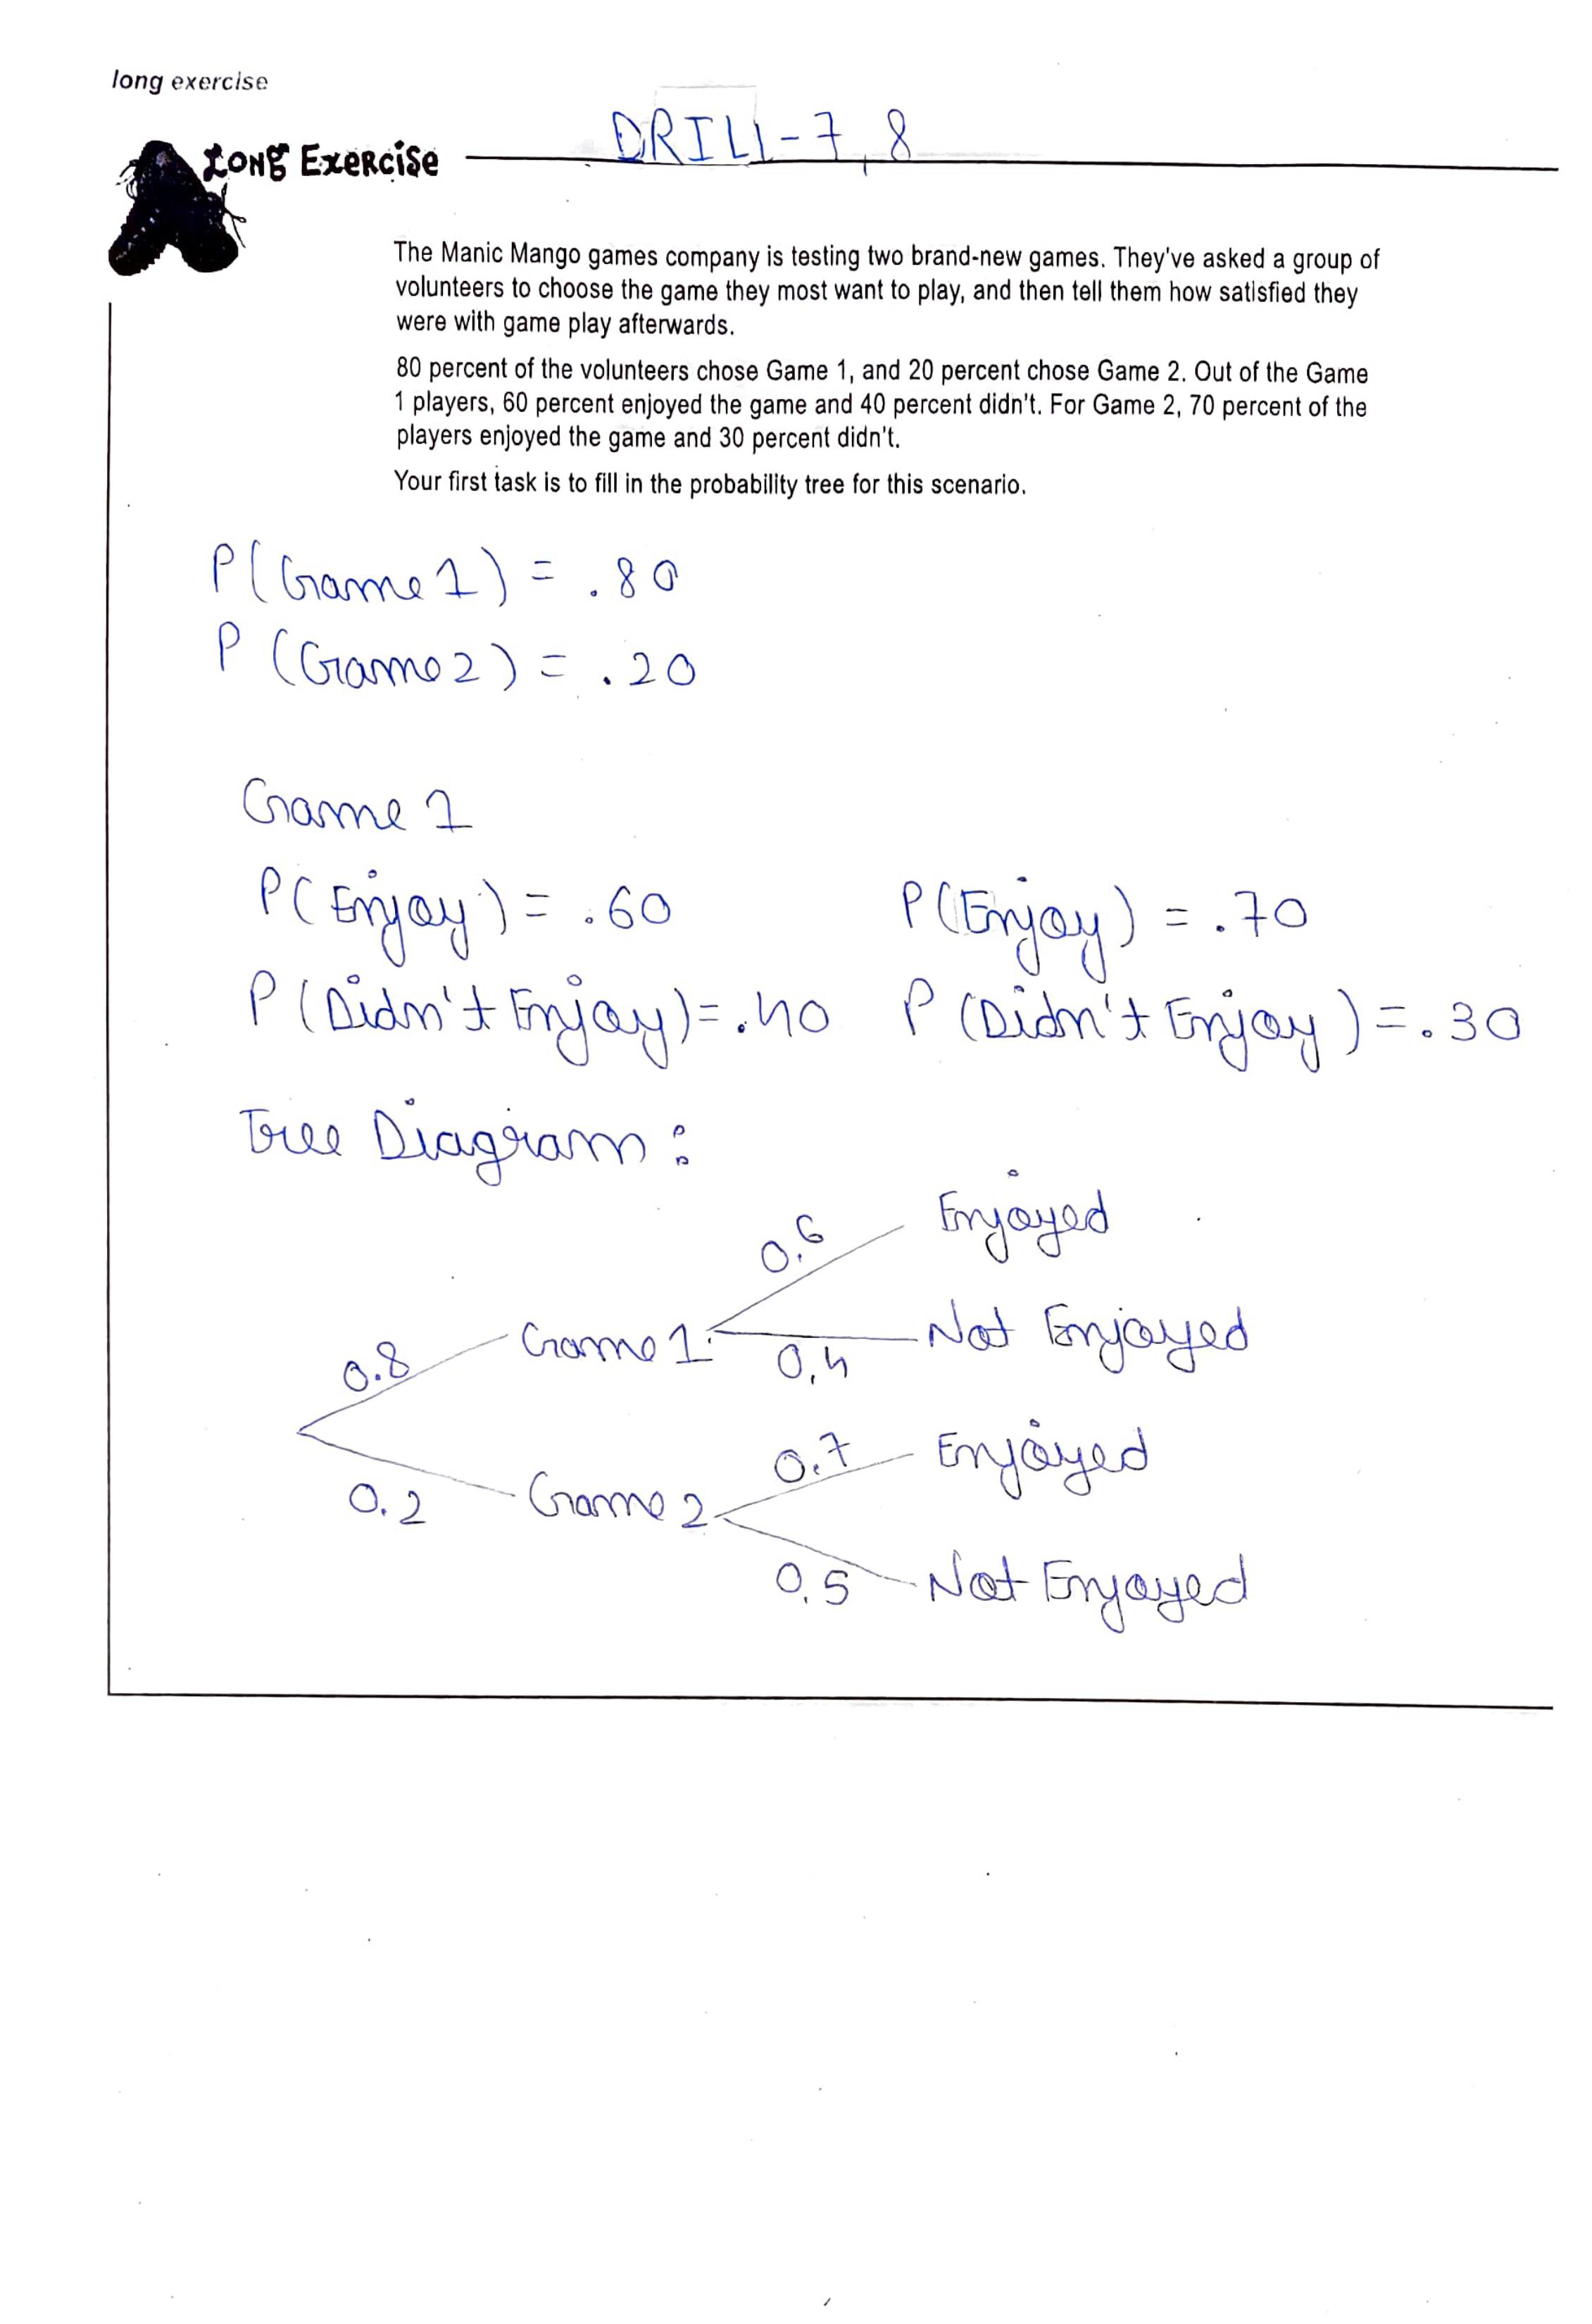 long exercise
DRILL-7, 8
LONG EXERCISE
The Manic Mango games company is testing two brand-new games. They've asked a group of
volunteers to choose the game they most want to play, and then tell them how satisfied they
were with game play afterwards.
80 percent of the volunteers chose Game 1, and 20 percent chose Game 2. Out of the Game
1 players, 60 percent enjoyed the game and 40 percent didn't. For Game 2, 70 percent of the
players enjoyed the game and 30 percent didn't.
Your first task is to fill in the probability tree for this scenario.
P(Game 1) = .80
P (Game 2) = .20
Game 1
P(Enjoy) = .60 P(Enjoy) = .70
P (Didn't Enjoy) = .40 P (Didn't Enjoy) = .30
Tree Diagram :
0.6 Enjoyed
0.8 Game 1 0.4 Not Enjoyed
0.7 Enjoyed
0.2 Game 2
0.5 Not Enjoyed